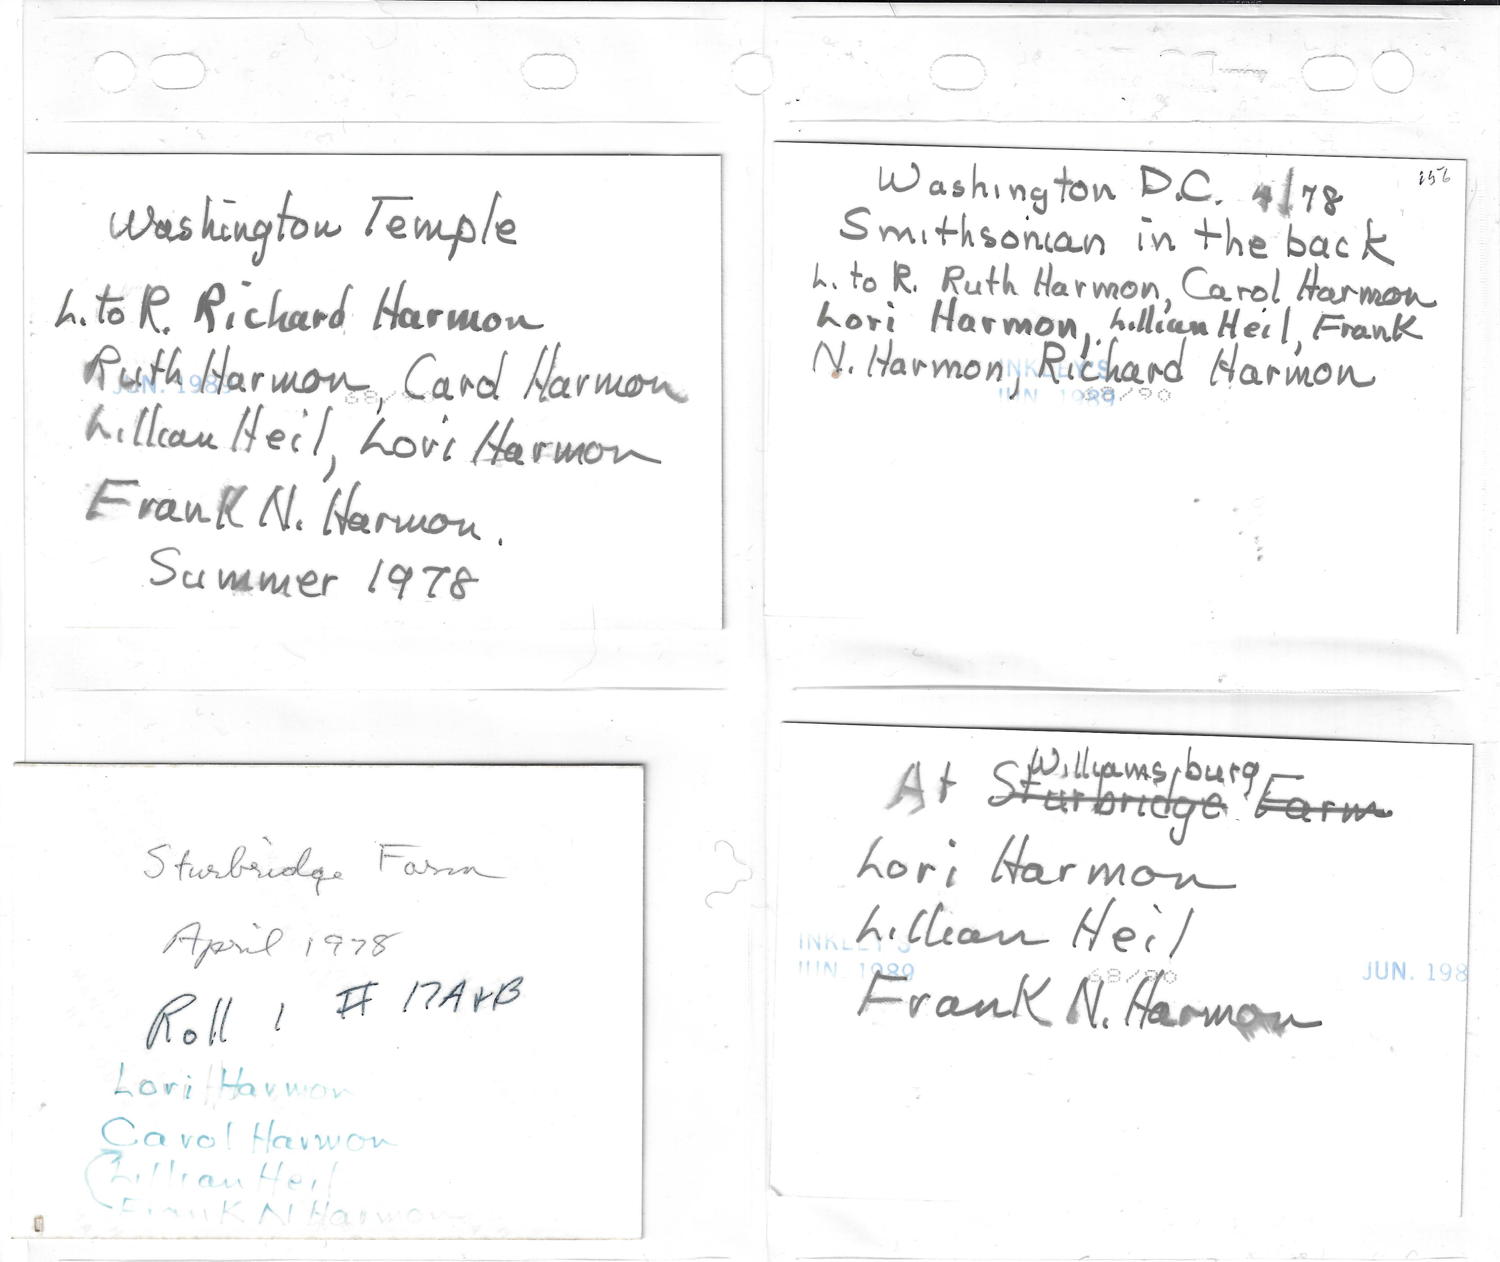 Washington Temple
L. to R. Richard Harmon
Ruth Harmon, Carol Harmon
Lillian Heil, Lori Harmon
Frank N. Harmon.
Summer 1978
JUN. 198
68/90
156
Washington D.C. 4/78
Smithsonian in the back
L. to R. Ruth Harmon, Carol Harmon
Lori Harmon, Lillian Heil, Frank
N. Harmon, Richard Harmon
INKLEY'S
JUN. 1989
68/90
Sturbridge Farm
April 1978
Roll 1 # 17A+B
Lori Harmon
Carol Harmon
Lillian Heil
Frank N Harmon
Williamsburg
At Sturbridge Farm
Lori Harmon
Lillian Heil
Frank N. Harmon
INKLEY'S
JUN. 1989
68/90
JUN. 198